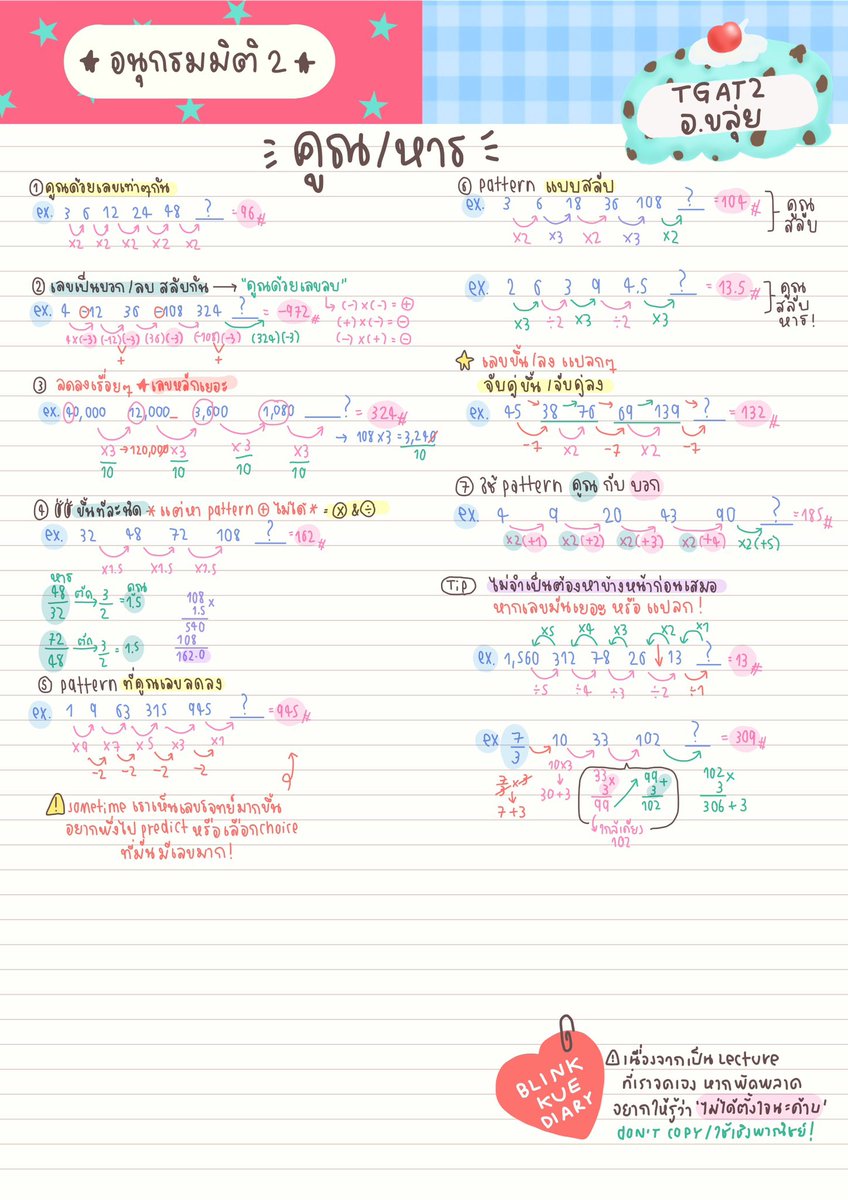 ★ อนุกรมมิติ 2 ★
TGAT2
อ.ขลุ่ย
คูณ/หาร
① คูณด้วยเลขเท่าๆกัน
ex. 3 6 12 24 48 ? = 96 #
x2 x2 x2 x2 x2
② เลขเป็นบวก/ลบ สลับกัน → "คูณด้วยเลขลบ"
ex. 4 -12 36 -108 324 ? = -972 #
4x(-3) (-12)(-3) (36)(-3) (-108)(-3) (324)(-3)
+ +
(-)x(-) = +
(+)x(-) = -
(-)x(+) = -
③ ลดลงเรื่อยๆ * เลขหลักเยอะ
ex. 40,000 12,000 3,600 1,080 ? = 324 #
x3 → 120,000 x3 x3 x3
10 10 10 10
→ 108 x3 = 3,240
10
④ ขึ้นทีละนิด * แต่หา pattern + ไม่ได้ * = x & ÷
ex. 32 48 72 108 ? = 162 #
x1.5 x1.5 x1.5
หาร คูณ
48 ตัด → 3 = 1.5
32 2
72 ตัด → 3 = 1.5
48 2
108 x
1.5
540
108
162.0
⑤ pattern ที่คูณเลขลดลง
ex. 1 9 63 315 945 ? = 945 #
x9 x7 x5 x3 x1
-2 -2 -2 -2
sometime เราเห็นเลขโจทย์มากขึ้น
อยากพึ่งไป predict หรือเลือก choice
ที่มันมีเลขมาก!
⑥ pattern แบบสลับ
ex. 3 6 18 36 108 ? = 104 #
x2 x3 x2 x3 x2
คูณ
สลับ
ex. 2 6 3 9 4.5 ? = 13.5 #
x3 ÷2 x3 ÷2 x3
คูณ
สลับ
หาร!
เลขขึ้น/ลง แปลกๆ
จับคู่ขึ้น/จับคู่ลง
ex. 45 38 76 69 139 ? = 132 #
-7 x2 -7 x2 -7
⑦ ใช้ pattern คูณ กับ บวก
ex. 4 9 20 43 90 ? = 185 #
x2(+1) x2(+2) x2(+3) x2(+4) x2(+5)
Tip ไม่จำเป็นต้องหาข้างหน้าก่อนเสมอ
หากเลขมันเยอะ หรือ แปลก!
x5 x4 x3 x2 x1
ex. 1,560 312 78 26 13 ? = 13 #
÷5 ÷4 ÷3 ÷2 ÷1
ex 7 10 33 102 ? = 309 #
3
7 x 3
3
7+3
10x3
30+3
33 x
3
99
99 +
3
102
ใกล้เคียง
102
102 x
3
306 + 3
BLINK
KUE
DIARY
เนื่องจากเป็น Lecture
ที่เราจดเอง หากผิดพลาด
อยากให้รู้ว่า 'ไม่ได้ตั้งใจนะค้าบ'
DON'T COPY / ใช้เชิงพาณิชย์!